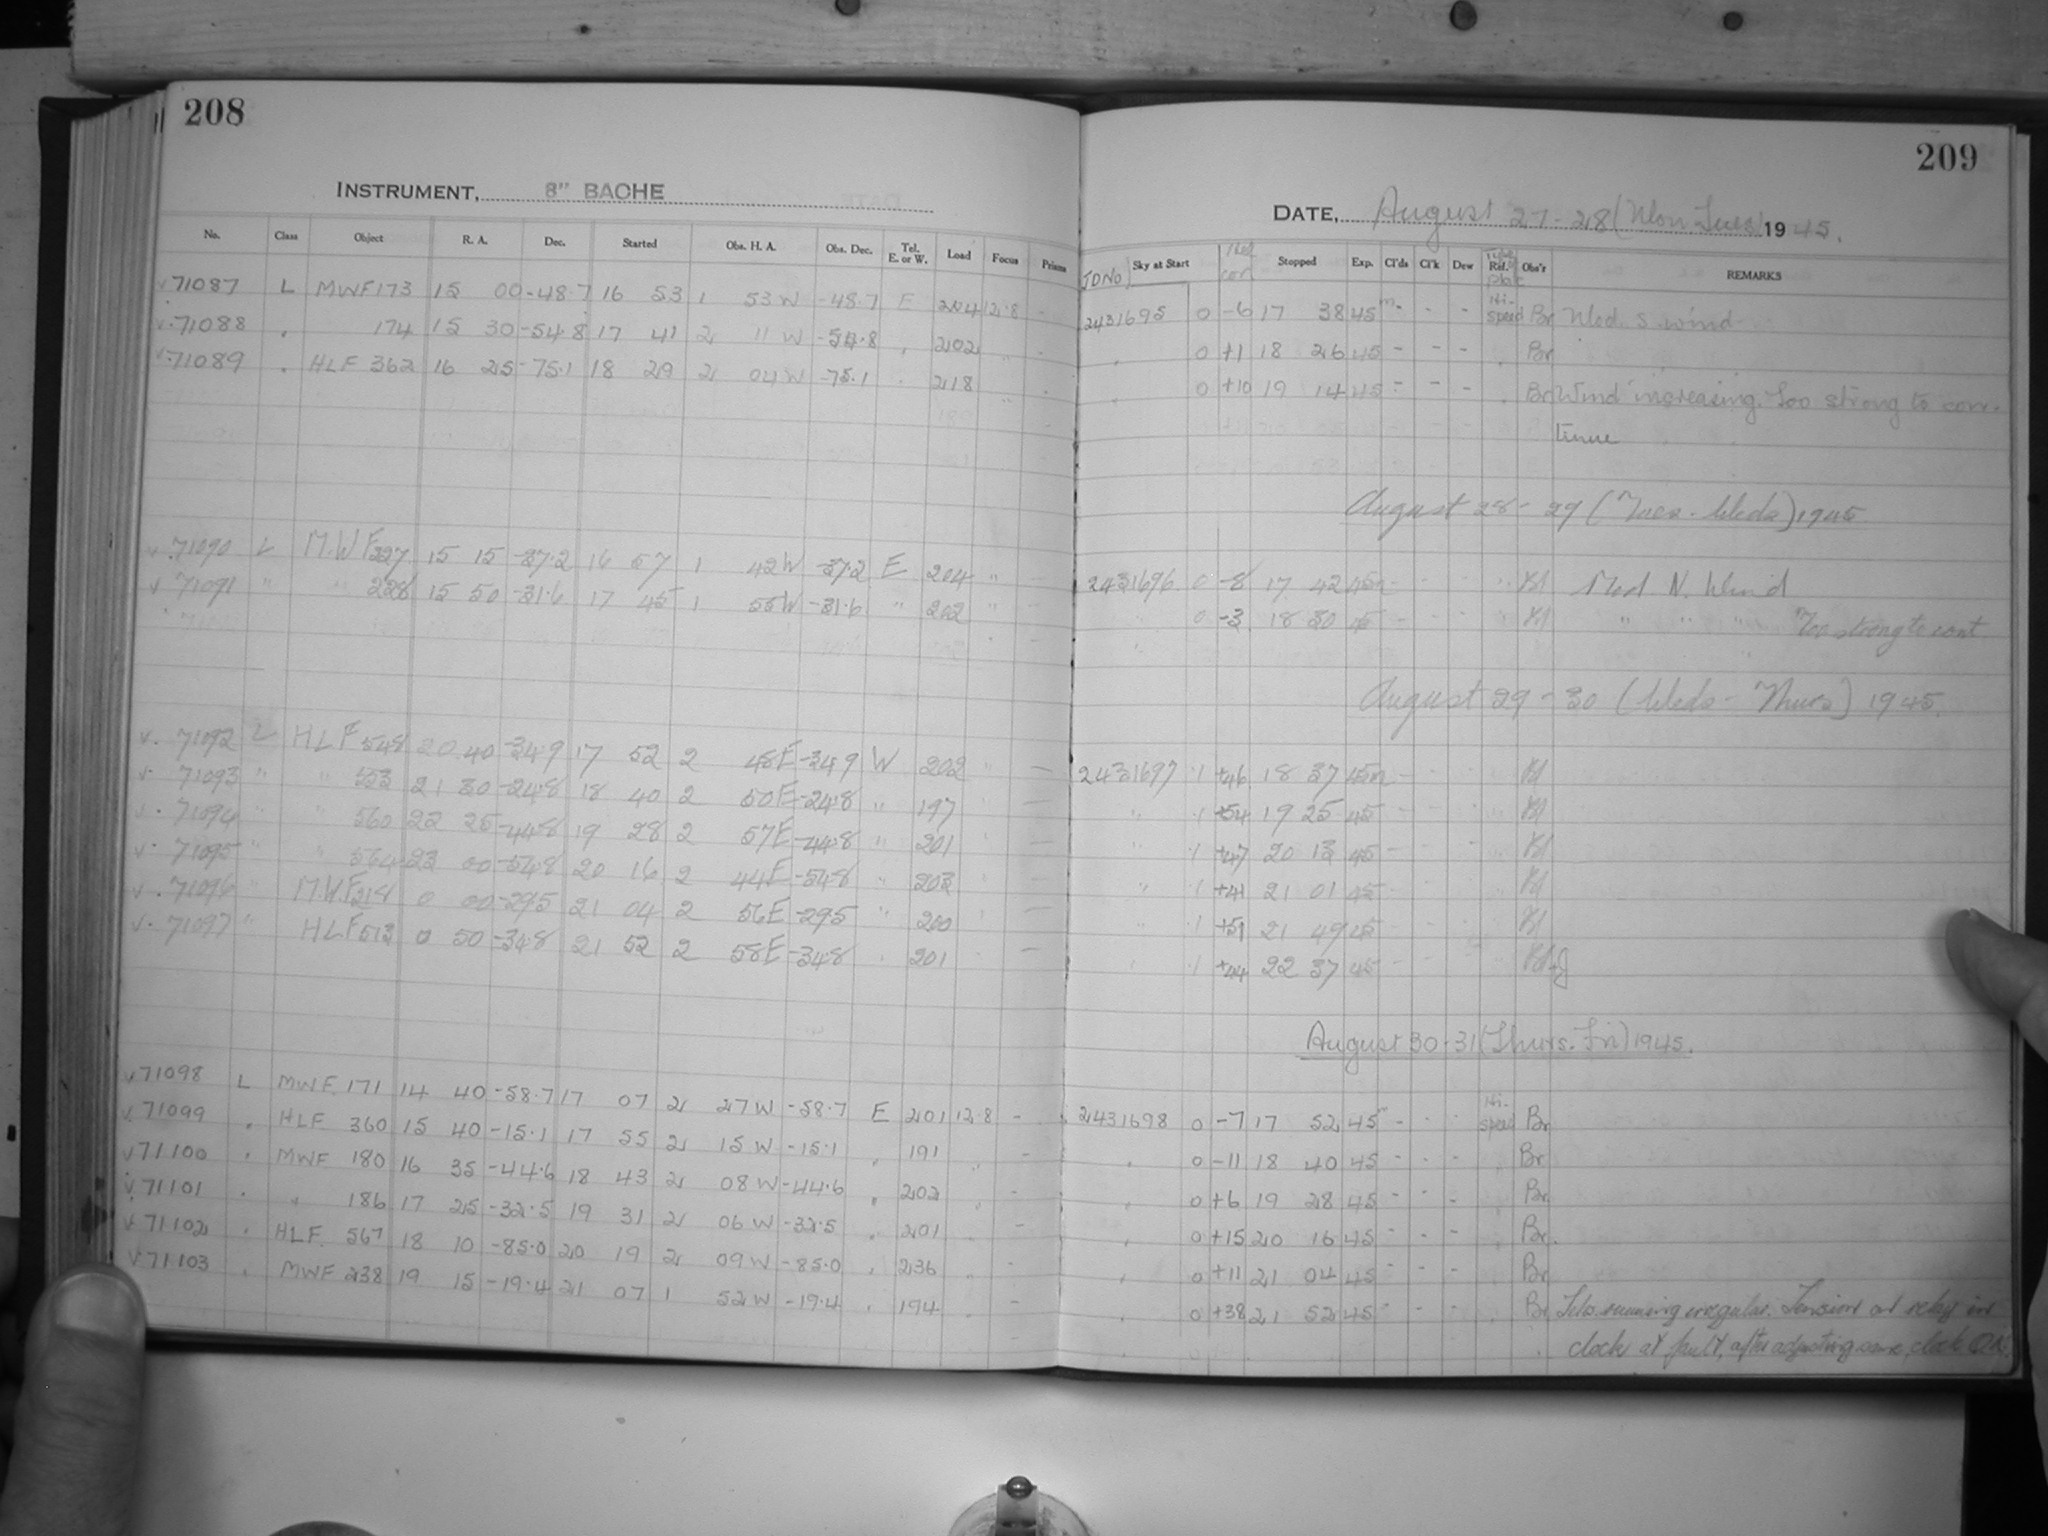 208
INSTRUMENT, 8" BACHE
No. Class Object R. A. Dec. Started Obs. H. A. Obs. Dec. Tel. E. or W. Load Focus Prisms
v 71087 L MWF 173 15 00 -48.7 16 53 1 53 W -48.7 E 204 12.8 -
v 71088 " 174 15 30 -54.8 17 41 2 11 W -54.8 " 202 " -
v 71089 " HLF 362 16 25 -75.1 18 29 2 04 W -75.1 " 218 "
v 71090 L M.W.F 227 15 15 -37.2 16 57 1 42 W -37.2 E 204 " -
v 71091 " " 228 15 50 -31.6 17 45 1 55 W -31.6 " 202 " -
v. 71092 L HLF 548 20 40 -34.9 17 52 2 48 E -34.9 W 202 " -
v. 71093 " " 553 21 30 -24.8 18 40 2 50 E -24.8 " 197 -
v. 71094 " " 560 22 25 -44.8 19 28 2 57 E -44.8 " 201 -
v. 71095 " " 564 23 00 -54.8 20 16 2 44 E -54.8 " 203 -
v. 71096 " M.W.F 218 0 00 -29.5 21 04 2 56 E -29.5 " 200 -
v. 71097 " HLF 513 0 50 -34.8 21 52 2 58 E -34.8 " 201 -
v 71098 L MWF. 171 14 40 -58.7 17 07 2 27 W -58.7 E 201 12.8 -
v 71099 " HLF 360 15 40 -15.1 17 55 2 15 W -15.1 " 191 -
v 71100 " MWF 180 16 35 -44.6 18 43 2 08 W -44.6 " 202 " -
v 71101 " " 186 17 25 -32.5 19 31 2 06 W -32.5 " 201 " -
v 71102 " HLF. 567 18 10 -85.0 20 19 2 09 W -85.0 " 236 " -
v 71103 " MWF 238 19 15 -19.4 21 07 1 52 W -19.4 " 194 " -
209
DATE, August 27-28 (Mon-Tues) 1945.
JD No Sky at Start Stopped Exp. Cl'ds Cl'k Dew Ref. Obs'r REMARKS
2431695 0 -6 17 38 45m - - - Hi-speed Br Med. S. wind
" 0 +1 18 26 45 - - - " Br
" 0 +10 19 14 45 - - - " Br Wind increasing. Too strong to con-
tinue
August 28-29 (Tues-Weds) 1945
2431696 0 -8 17 42 45m - Med N. Wind
0 -3 18 30 45 - " " " Too strong to cont
August 29-30 (Weds-Thurs) 1945.
2431697 1 +46 18 37 45m -
" 1 +54 19 25 45 -
" 1 +47 20 13 45 -
" 1 +41 21 01 45 -
" 1 +51 21 49 45 -
" 1 +44 22 37 45 -
August 30-31 (Thurs-Fri) 1945.
2431698 0 -7 17 52 45m - - - Hi-speed Br
" 0 -11 18 40 45 - - - Br
" 0 +6 19 28 45 - - - " Br
" 0 +15 20 16 45 - - - " Br.
" 0 +11 21 04 45 - - - Br
" 0 +38 21 52 45 - - - " Br Tele. running irregular. Tension on relay in
clock at fault, after adjusting same, clock O.K.